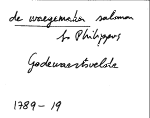 de waegemaker salomon
fs Philippus
Godewaertsvelde
1789-19